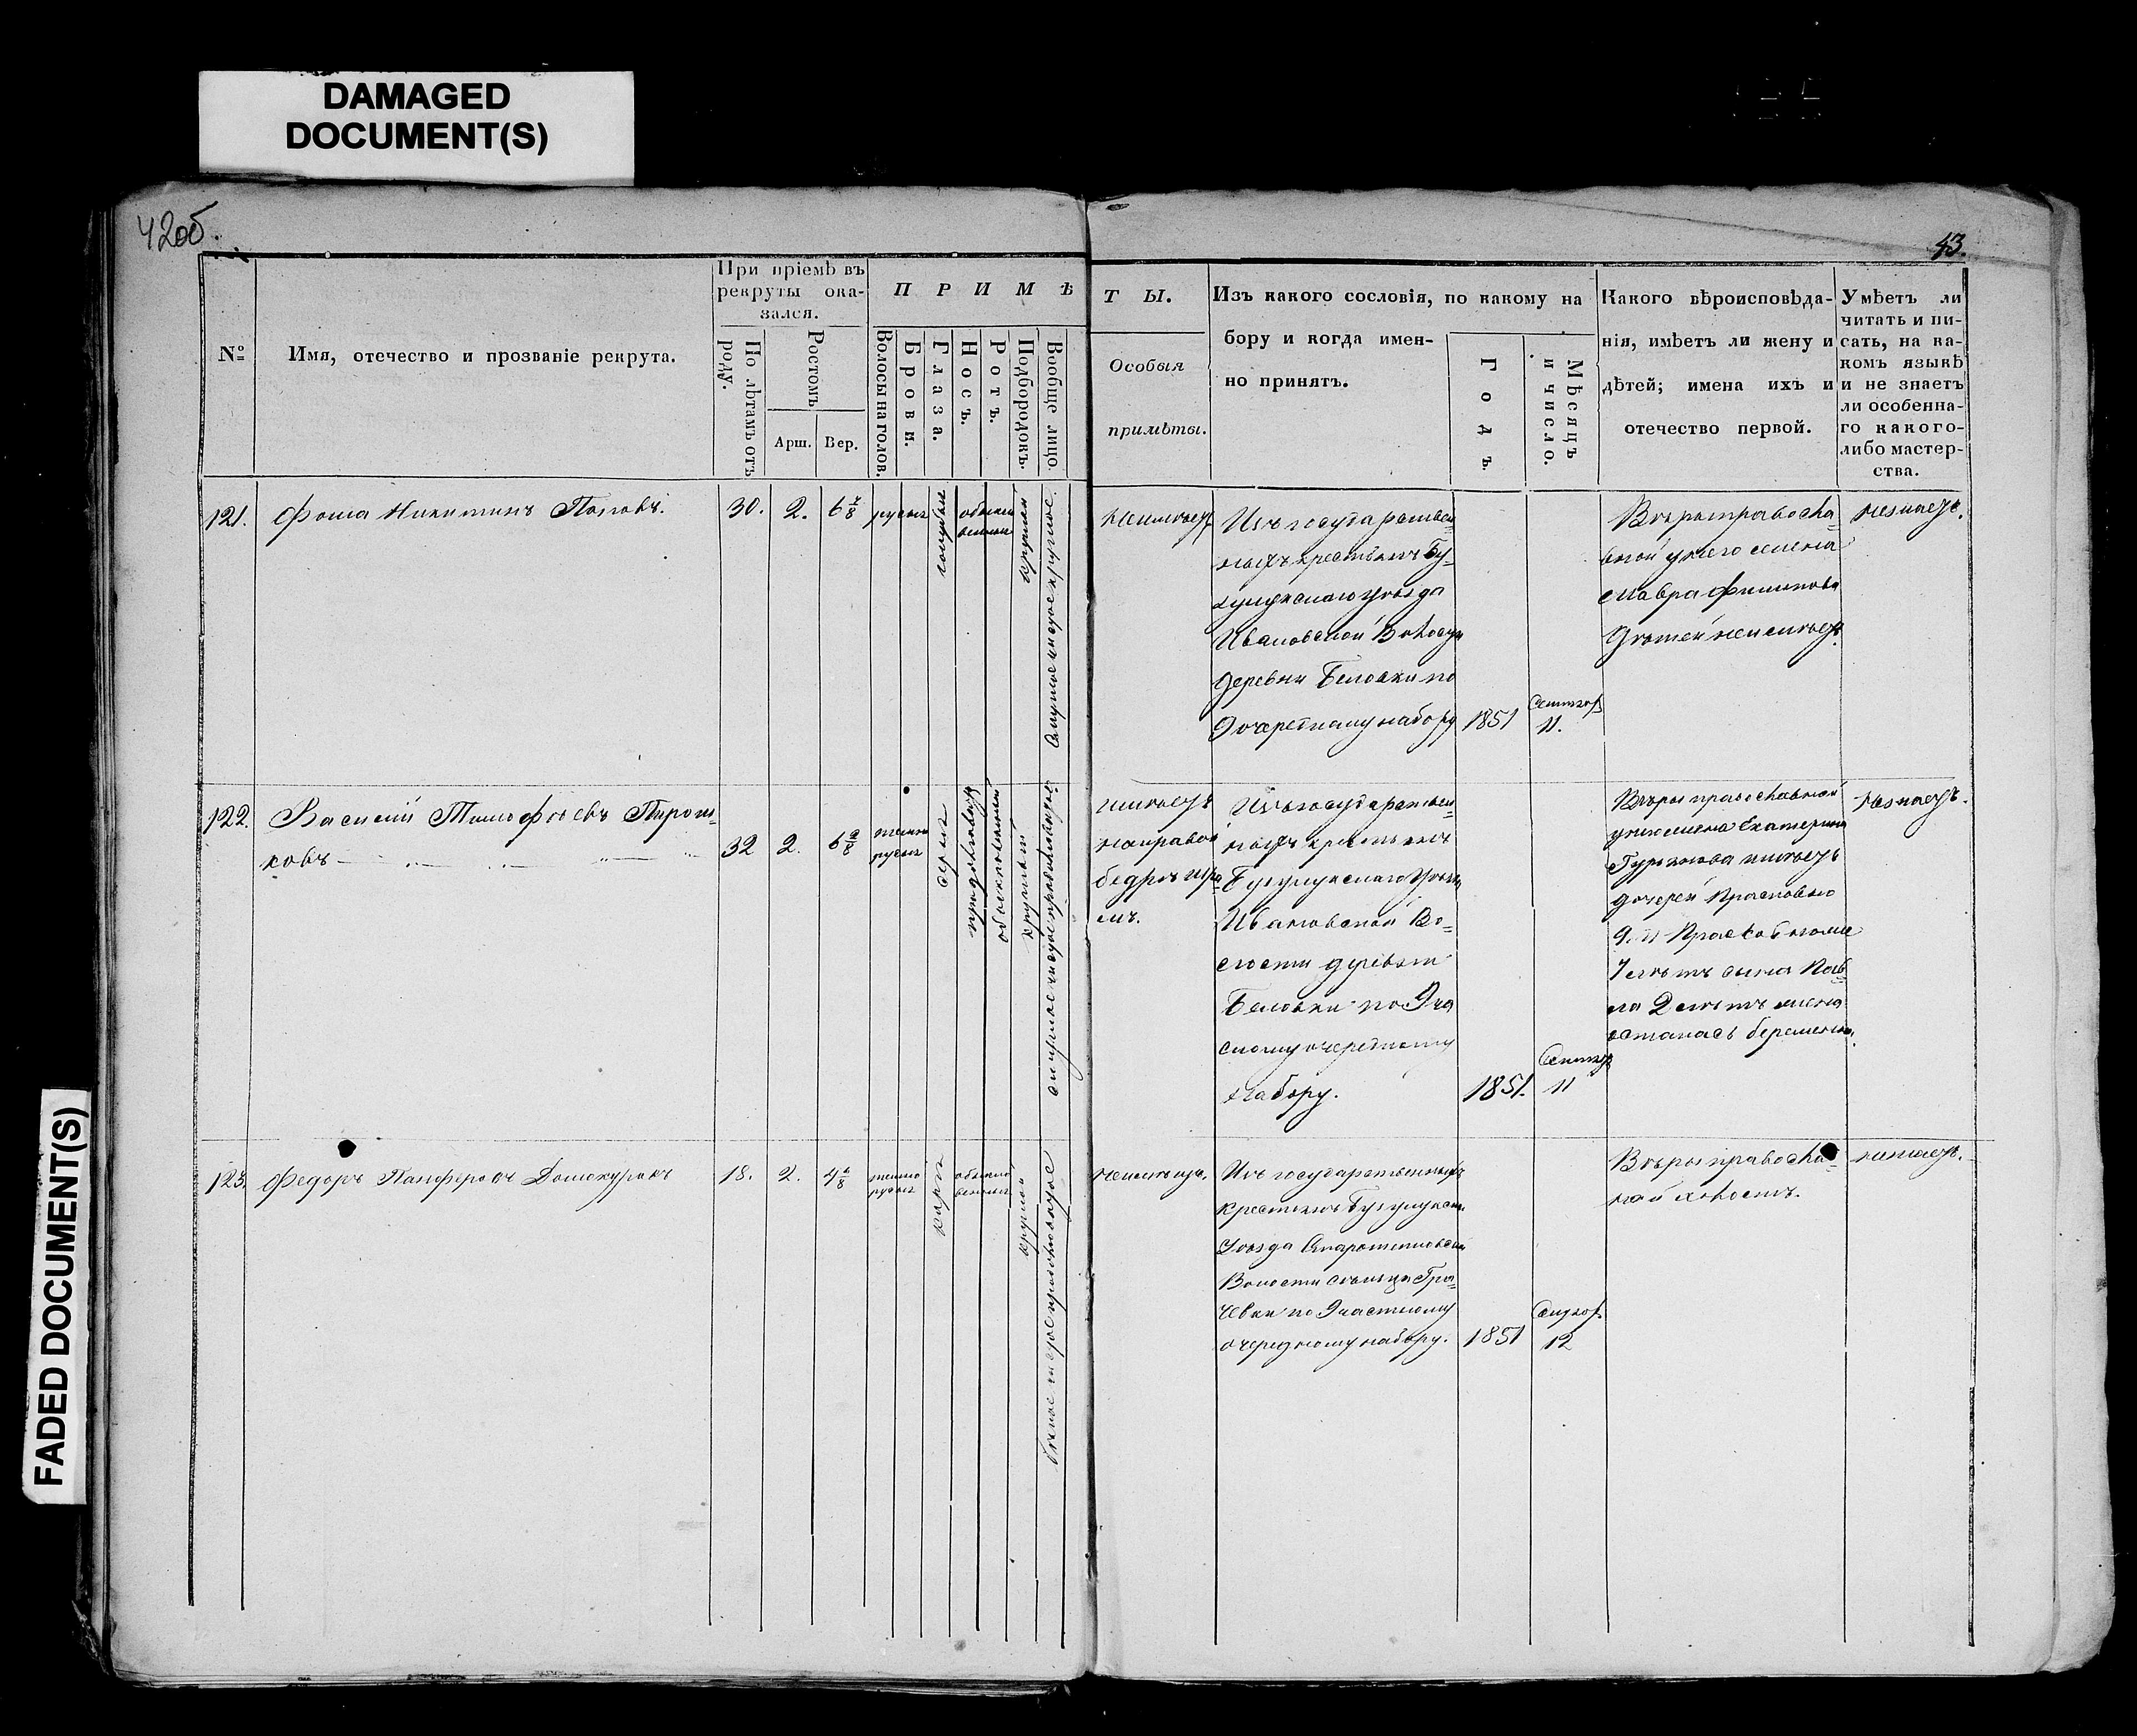 DAMAGED
DOCUMENT(S)
FADED DOCUMENT(S)
42об.
43.
№
Имя, отечество и прозваніе рекрута.
При пріемѣ въ
рекруты ока-
зался.
По лѣтамъ отъ
роду.
Ростомъ
Арш.
Вер.
П Р И М Ѣ
Волосы на голов.
Брови.
Глаза.
Носъ.
Ротъ.
Подбородокъ.
Вообще лицо.
Т Ы.
Особыя
примѣты.
Изъ какого сословія, по какому на
бору и когда имен-
но принятъ.
Годъ.
Мѣсяцъ
и число.
Какого вѣроисповѣда-
нія, имѣетъ ли жену и
дѣтей; имена ихъ и
отечество первой.
Умѣетъ ли
читать и пи-
сать, на ка-
комъ языкѣ
и не знаетъ
ли особенна-
го какого-
либо мастер-
ства.
121.
Фома Никитинъ Поповъ.
30.
2.
6 4/8
русые
голубые
обыкно
венные
круглый
неимѣетъ
Изъ государствен
ныхъ крестьянъ Бу-
зулукскаго уѣзда
Ивановской Волости
деревни Беловки по
9 очередному набору
1851
Сентяб.
11.
Вѣры правосла-
вной у него жена
Мавра Филипова
Дѣтей неимѣетъ
незнаетъ.
122.
Василий Тимофѣевъ Пирож-
ковъ
32
2.
6 2/8
темно
русые
серые
продолговатый
обыкновенный
круглый
имѣетъ
на правой
бедре шра
мъ.
Изъ государствен
ныхъ крестьянъ
Бузулукскаго уѣзда
Ивановской Во-
лости деревни
Беловки по 9 ча
стному очередному
набору.
1851.
Сентяб
11
Вѣры православной
у него жена Екатерина
имѣетъ
дочерей
7 лѣтъ сына Пав-
ла 2 лѣтъ жена
осталась беременна.
незнаетъ.
123.
Федоръ Панферовъ Домокуровъ
18.
2.
4 2/8
темно
русые
карые
обыкно
венные
круглый
неимѣетъ.
Изъ государственныхъ
крестьянъ Бузулукскаго
Уѣзда
Волости сельца Гра-
чевки по 9 частному
очередному набору.
1851
Сентяб.
12
Вѣры правосла-
ной холостъ.
незнаетъ.